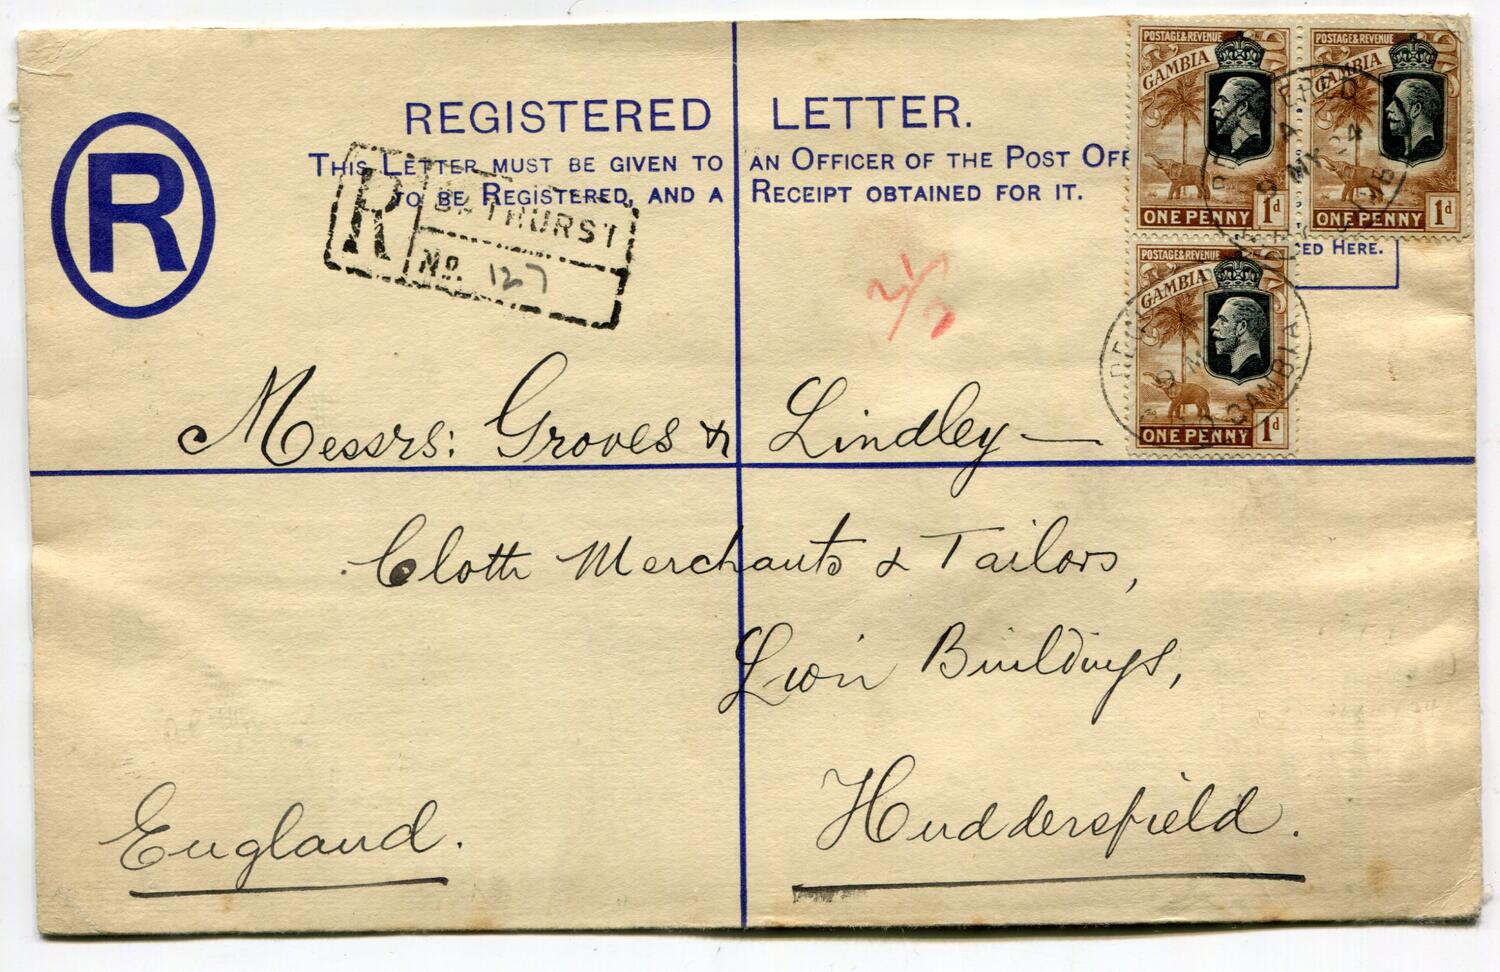 R
REGISTERED LETTER.
THIS LETTER MUST BE GIVEN TO AN OFFICER OF THE POST OFF
TO BE REGISTERED, AND A RECEIPT OBTAINED FOR IT.
CED HERE.
R BATHURST
No. 127
POSTAGE & REVENUE
GAMBIA
ONE PENNY 1d
POSTAGE & REVENUE
GAMBIA
ONE PENNY 1d
POSTAGE & REVENUE
GAMBIA
ONE PENNY 1d
A
9 MY 24
GAMBIA
Messrs: Groves & Lindley —
Cloth Merchants & Tailors,
Lion Buildings,
Huddersfield.
England.